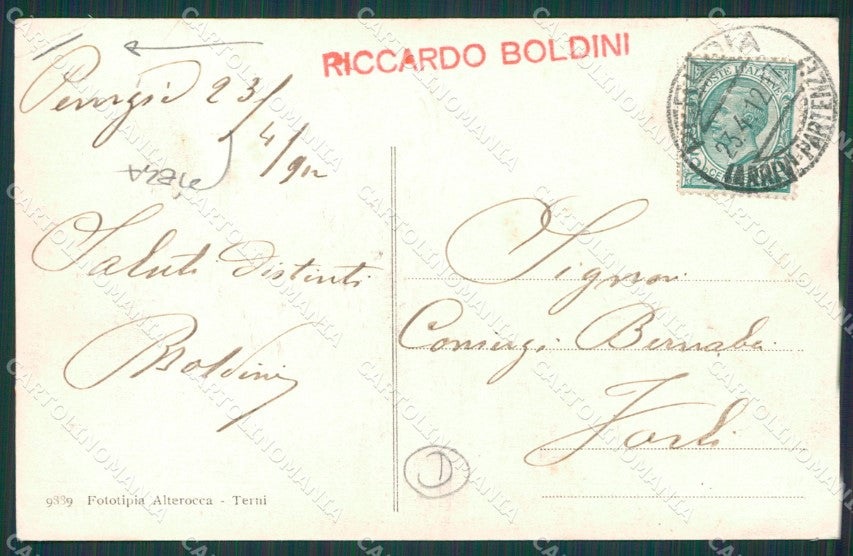 RICCARDO BOLDINI
Perugia 23/
4/912
Saluti Distinti
RBoldini
POSTE ITALIANE
23.4.12
(ARRIVI-PARTENZE)
Signor
Bernabei
Forlì
9889 Fototipia Alterocca - Terni
CARTOLINOMANIA